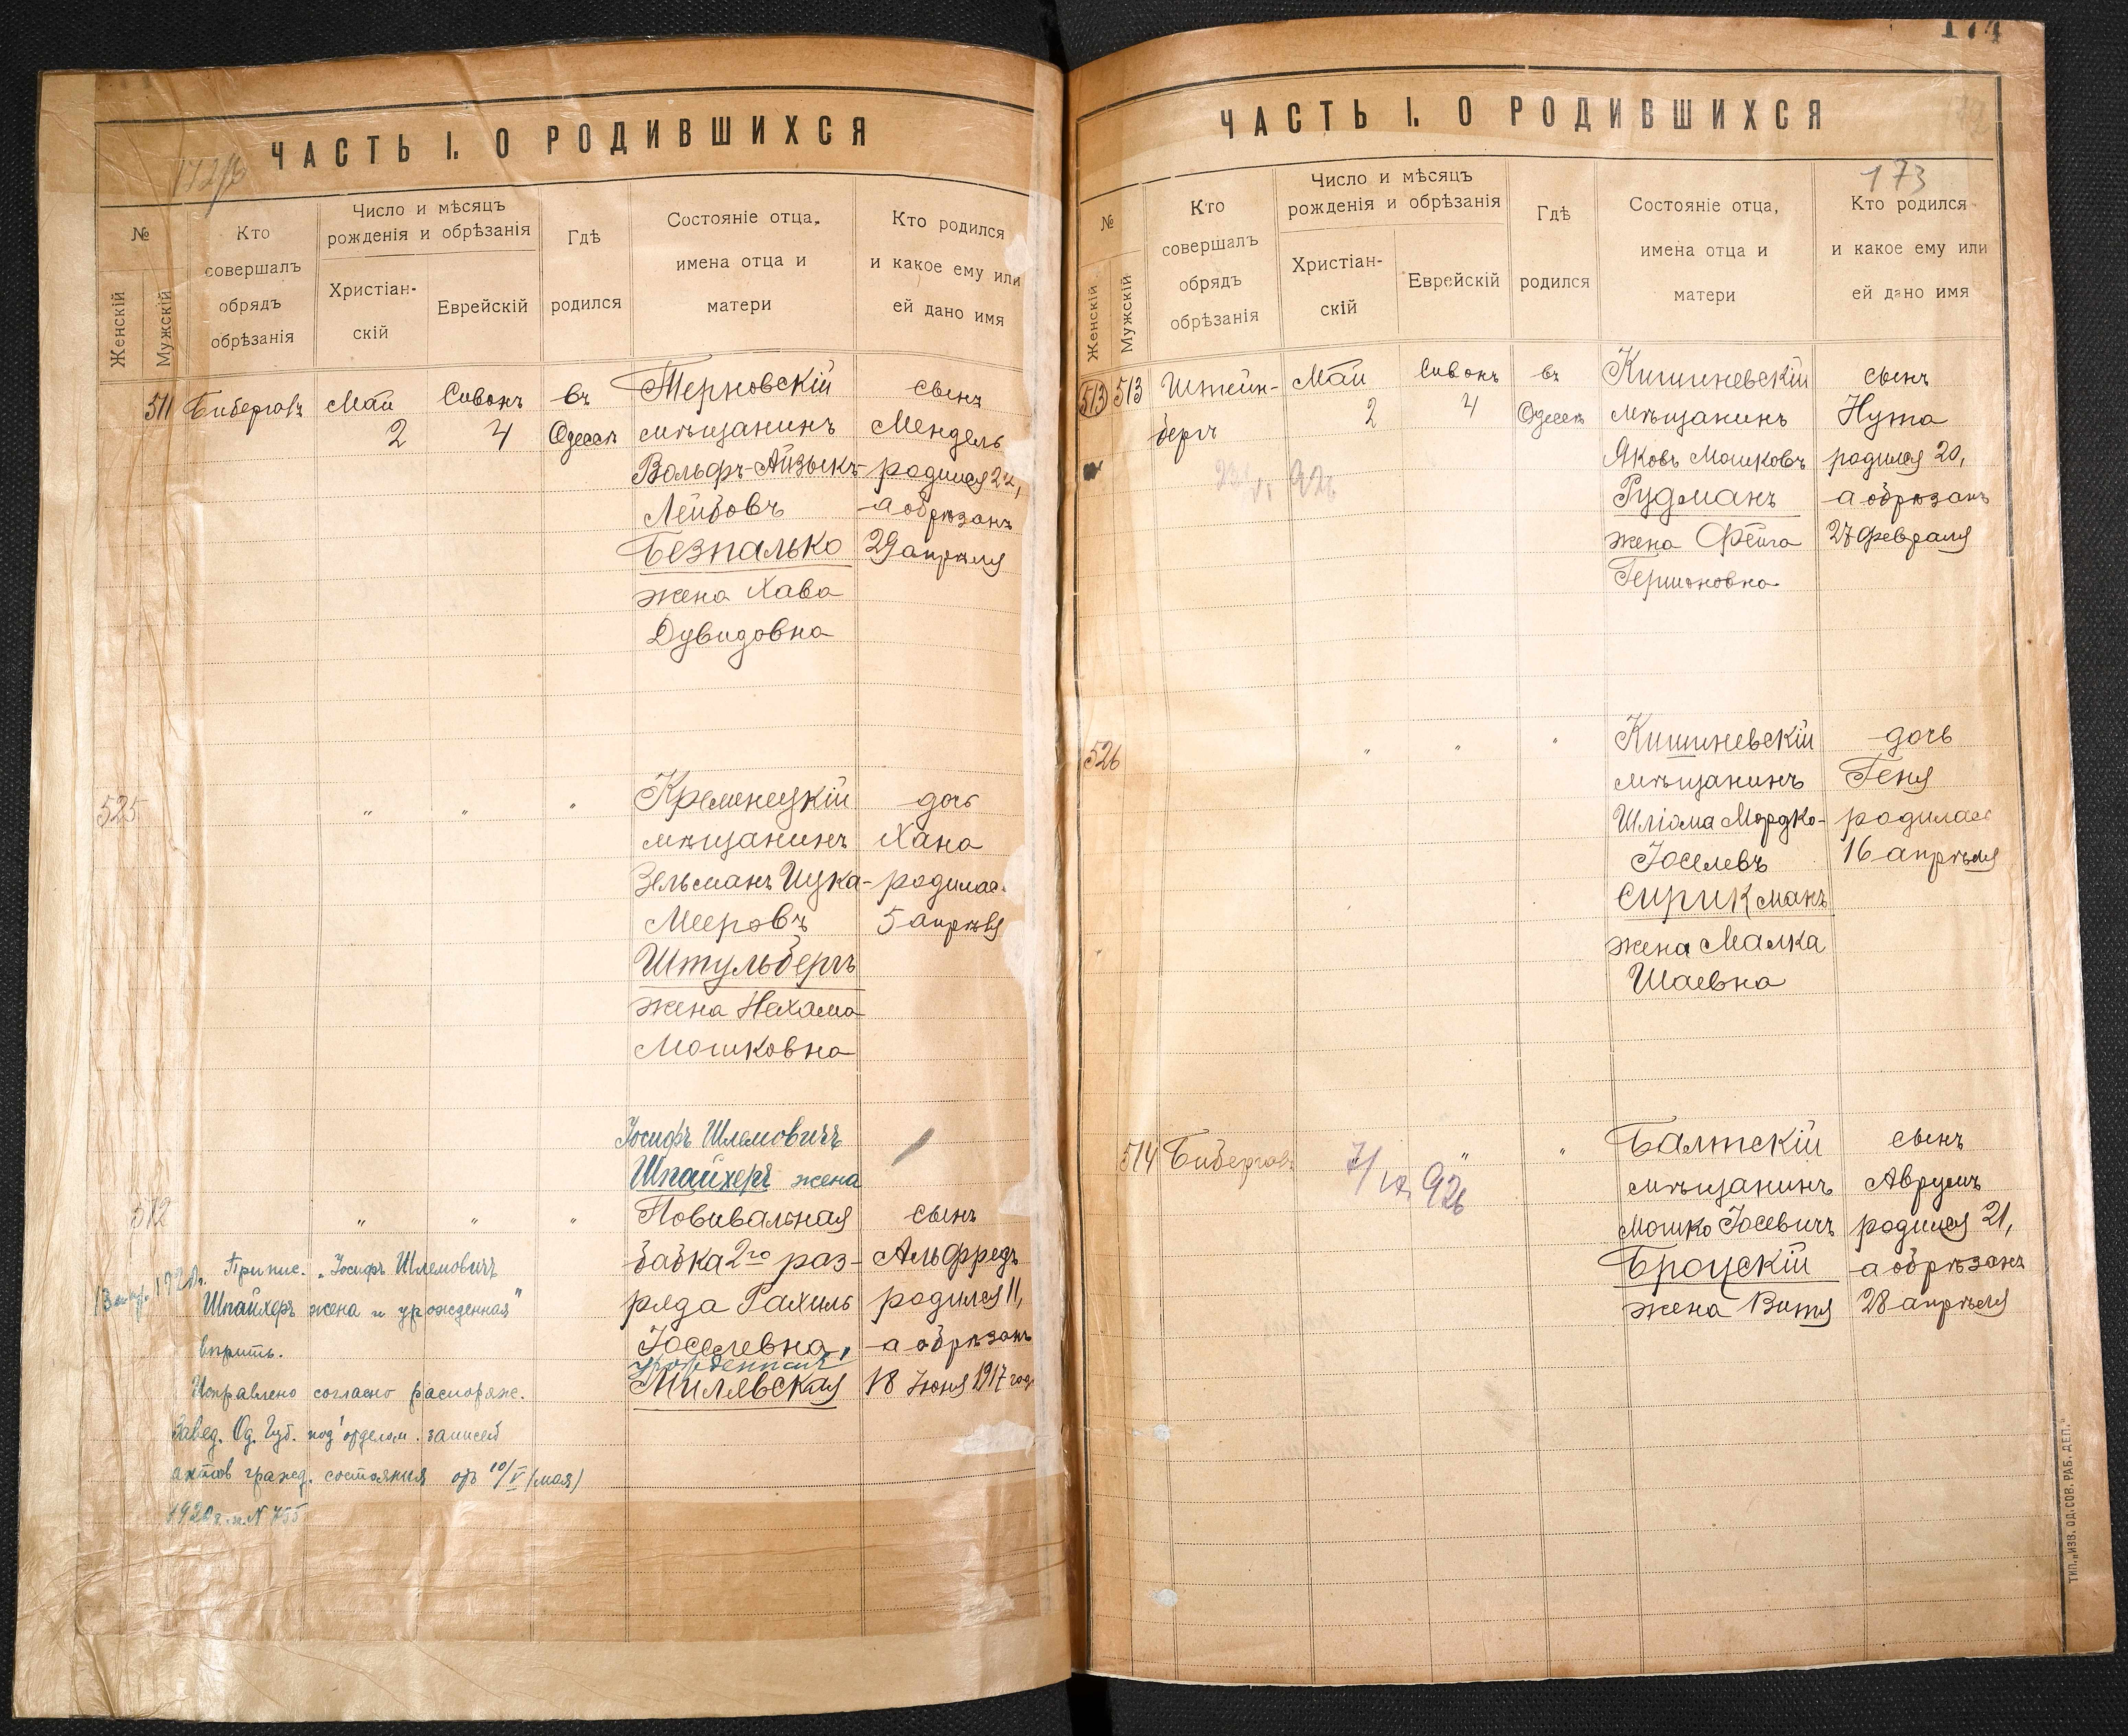 ЧАСТЬ I. О РОДИВШИХСЯ
172/б
№
Женскій
Мужскій
Кто
совершалъ
обрядъ
обрѣзанія
Число и мѣсяцъ
рожденія и обрѣзанія
Христіан-
скій
Еврейскій
Гдѣ
родился
Состояніе отца,
имена отца и
матери
Кто родился
и какое ему или
ей дано имя
511 Бибергов Май Сивонъ въ Терновскій сынъ
2 4 Одессѣ мѣщанинъ Мендель
Вольфъ-Айзыкъ- родился 22,
Лейбовъ а обрѣзанъ
Безпалько 29 апрѣля
жена Хава
Дувидовна
525 " " " Кременецкій дочь
мѣщанинъ Хана
Зельманъ Ицка- родилас
Мееровъ 5 апрѣля
Штульбергъ
жена Нехама
Мошковна
Іосифъ Шлемовичъ
Шпайхеръ жена
512 " " " Повивальная сынъ
бабка 2го раз- Альфредъ
ряда Рахиль родился 11,
Іоселевна, а обрѣзанъ
урожденная
Милявская 18 Іюня 1917 год
Припис. „Іосифъ Шлемовичъ
Шпайхеръ жена и урожденная"
вѣрить.
Исправлено согласно распоряж.
Завед. Од. Губ. под'отделом. записей
актов гражд. состояния от 10/V (мая)
1920 г. № 755
174
ЧАСТЬ I. О РОДИВШИХСЯ
173
№
Женскій
Мужскій
Кто
совершалъ
обрядъ
обрѣзанія
Число и мѣсяцъ
рожденія и обрѣзанія
Христіан-
скій
Еврейскій
Гдѣ
родился
Состояніе отца,
имена отца и
матери
Кто родился
и какое ему или
ей дано имя
513 513 Штейн- Май Сивонъ въ Кишиневскій сынъ
бергъ 2 4 Одессѣ мѣщанинъ Нута
Яковъ Мошковъ родился 20,
Рудманъ а обрѣзанъ
жена Фейга 27 февраля
Гершоновна
526 " " " Кишиневскій дочь
мѣщанинъ Геня
Шліома Мордко- родилас
Іоселевъ 16 апрѣля
Сирикманъ
жена Малка
Шаевна
514 Бибергов " " " Балтскій сынъ
мѣщанинъ Аврумъ
Мошко Іосевичъ родился 21,
Броцскій а обрѣзанъ
жена Витя 28 апрѣля
ТИП. „ИЗВ. ОД. СОВ. РАБ. ДЕП."